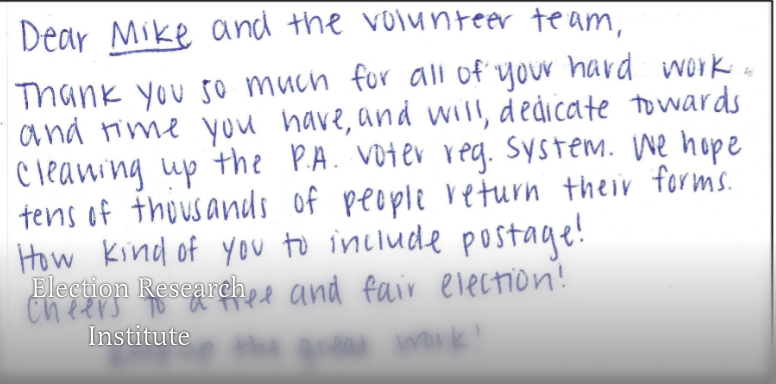 Dear Mike and the volunteer team,
Thank you so much for all of your hard work
and time you have, and will, dedicate towards
cleaning up the P.A. voter reg. system. We hope
tens of thousands of people return their forms.
How kind of you to include postage!
Cheers to a free and fair election!
Election Research
Institute
the great work!